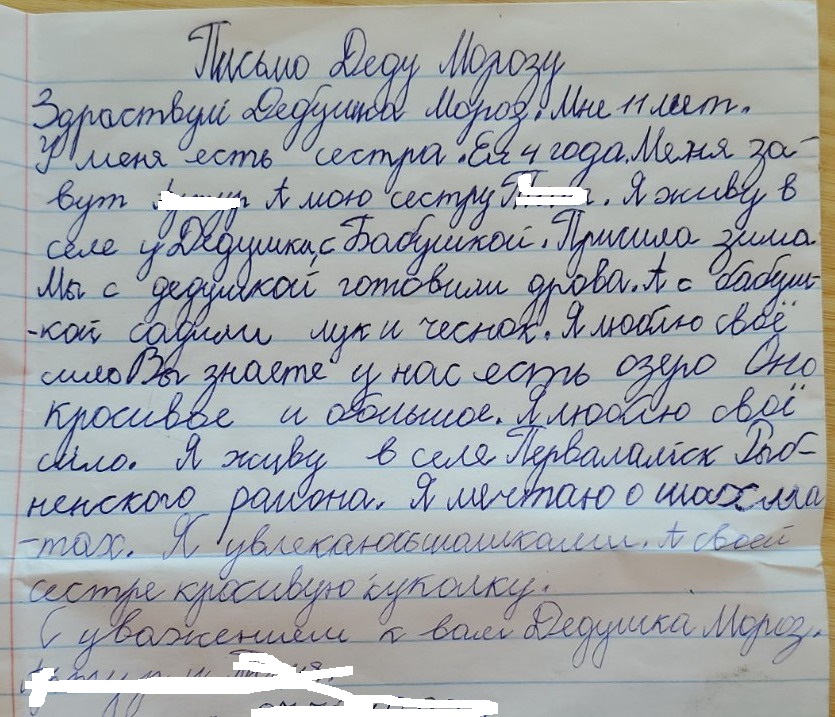 Письмо Деду Морозу
Здраствуй Дедушка Мороз. Мне 11 лет.
У меня есть сестра. Ей 4 года. Меня за-
вут А мою сестру Я живу в
селе у Дедушки, с Бабушкой. Пришла зима
Мы с дедушкой готовили дрова. А с бабуш-
-кой садили лук и чеснок. Я люблю своё
сило Вы знаете у нас есть озеро Оно
красивое и большое. Я люблю своё
сило. Я живу в селе Рыб-
ненского района. Я мечтаю о шахма
-тах. Я увлекаюсь шашками. А своей
сестре красивую куколку.
С уважением к вам Дедушка Мороз.